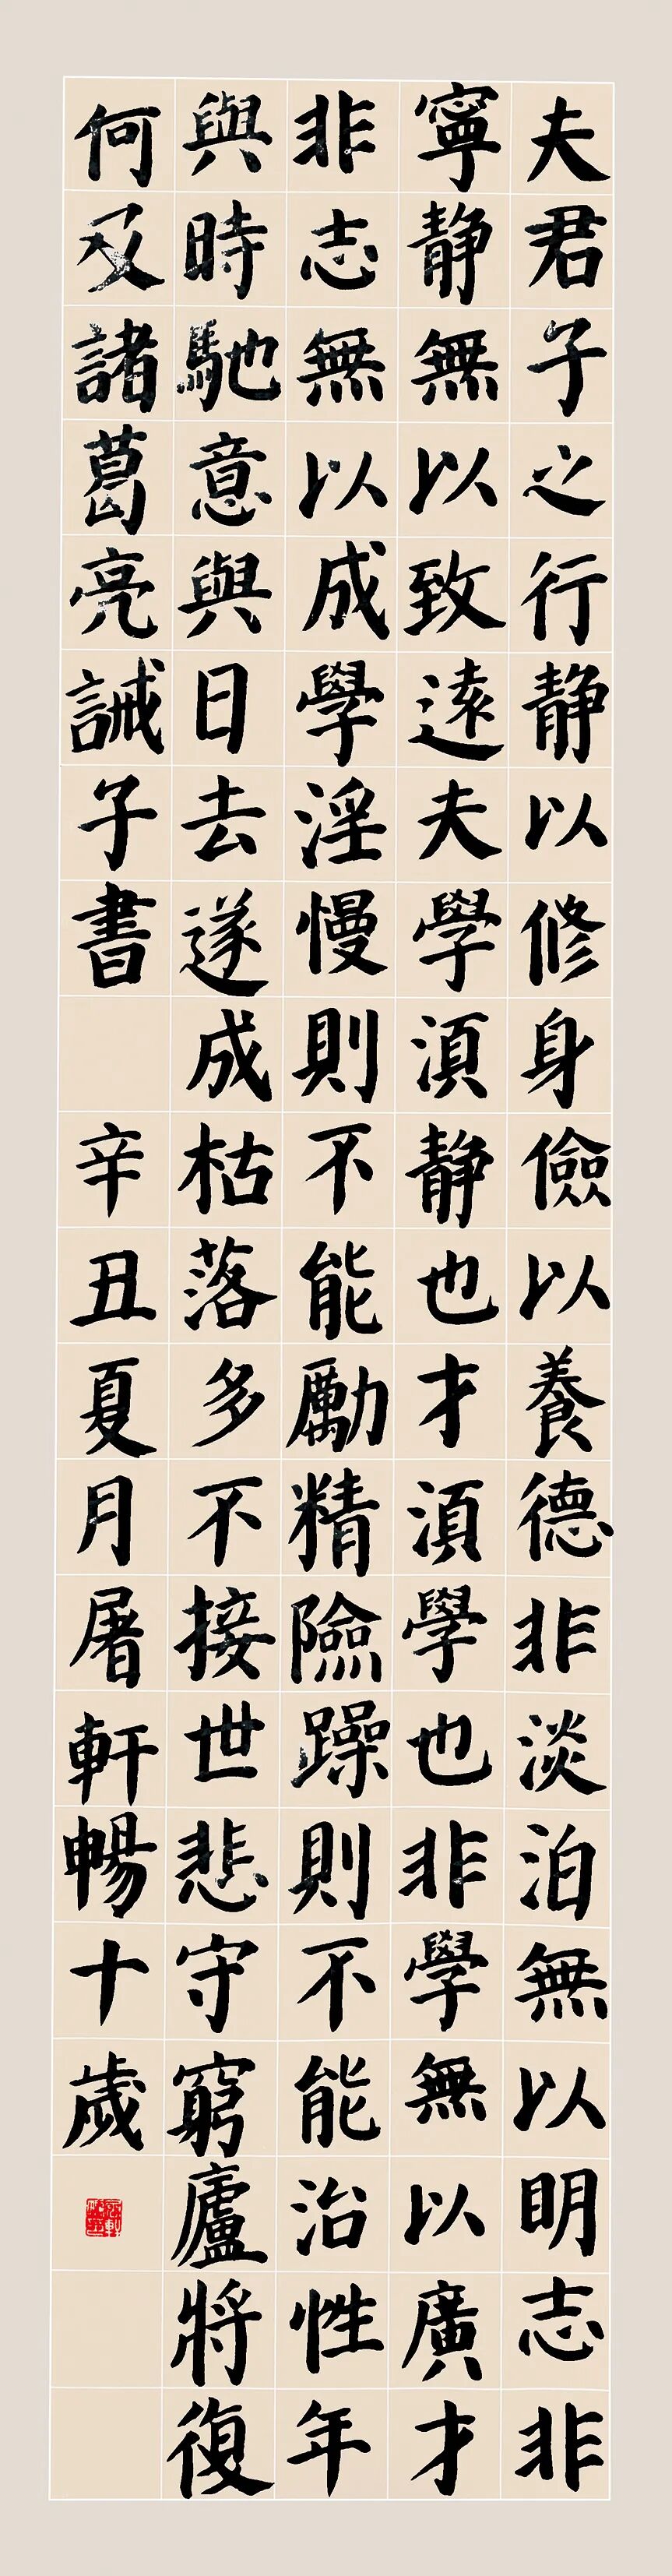 夫君子之行静以修身儉以養德非淡泊無以明志非
寧静無以致遠夫學須静也才須學也非學無以廣才
非志無以成學淫慢則不能勵精險躁則不能治性年
與時馳意與日去遂成枯落多不接世悲守窮廬將復
何及諸葛亮誡子書 辛丑夏月屠軒暢十歲